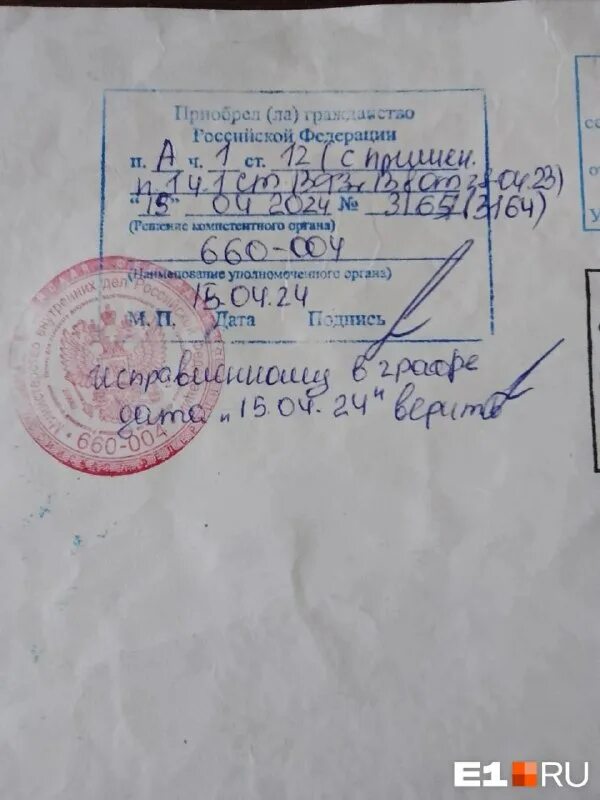 Приобрел (ла) гражданство
Российской Федерации
п. А ч. 1 ст. 12 (с примен.
п. 1 ч. 1 ст от 28.04.23)
"15" 04 2024 № 3165 (3164)
(Решение компетентного органа)
660-004
(Наименование уполномоченного органа)
15.04.24
М. П. Дата Подпись
исправленному в графе
дата "15.04.24" верить
Министерство внутренних дел Российской
660-004
E1.RU